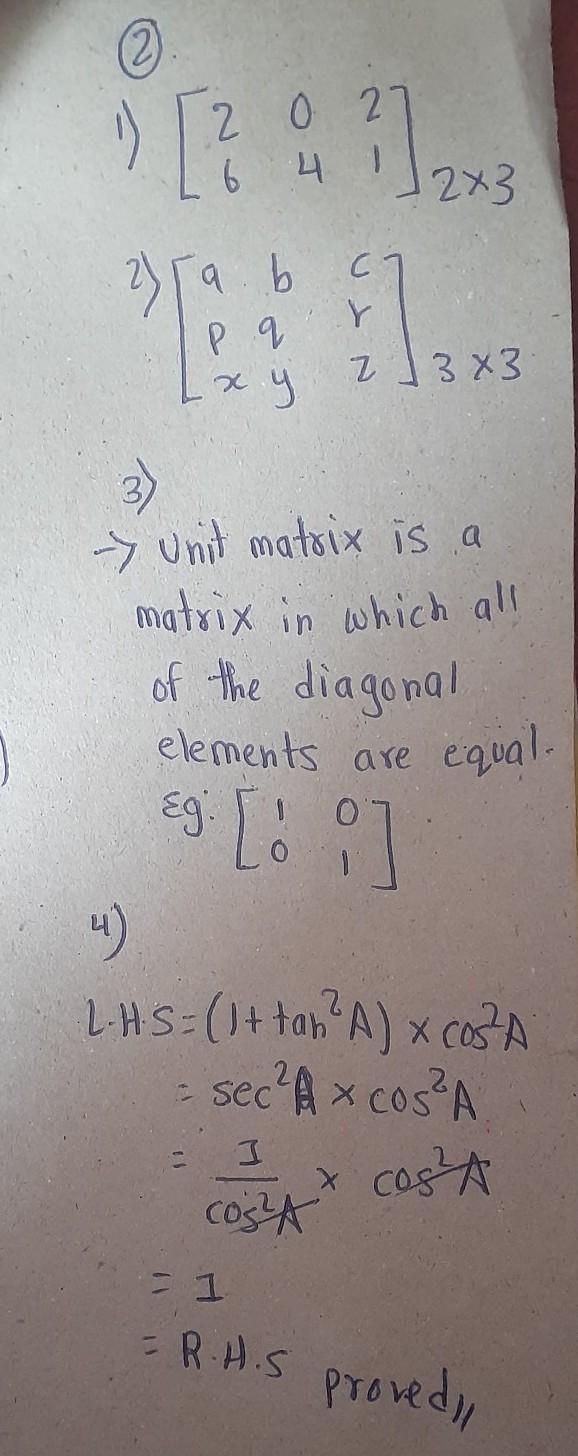 ②.
1) [2 0 2
6 4 1] 2×3
2) [a b c
p q r
x y z] 3×3
3)
→ Unit matrix is a
matrix in which all
of the diagonal
elements are equal.
Eg: [1 0
0 1]
4)
L.H.S=(1+tan²A)×cos²A
= sec²A × cos²A
= 1/cos²A × cos²A
= 1
= R.H.S proved,,